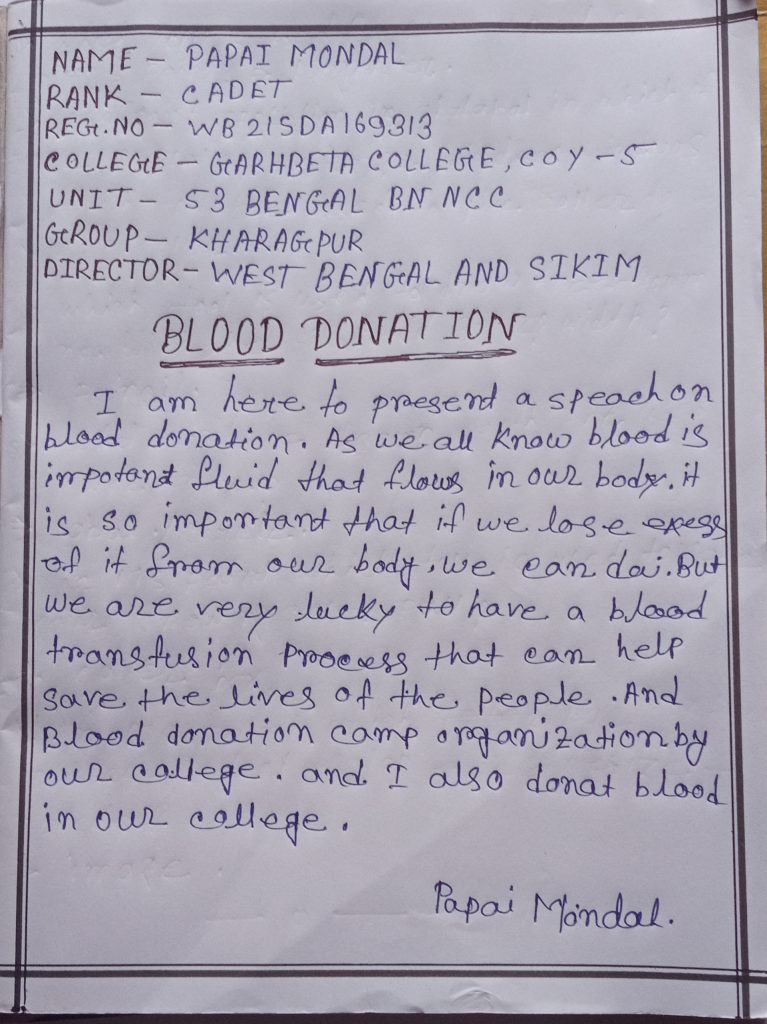 NAME - PAPAI MONDAL
RANK - CADET
REG. NO - WB21SDA169313
COLLEGE - GARHBETA COLLEGE, COY - 5
UNIT - 53 BENGAL BN NCC
GROUP - KHARAGPUR
DIRECTOR - WEST BENGAL AND SIKIM
BLOOD DONATION
I am here to present a speach on
blood donation. As we all know blood is
impotant fluid that flows in our body. it
is so important that if we lose exess
of it from our body, we can dai. But
we are very lucky to have a blood
transfusion process that can help
save the lives of the people. And
Blood donation camp organization by
our college. and I also donat blood
in our college.
Papai Mondal.